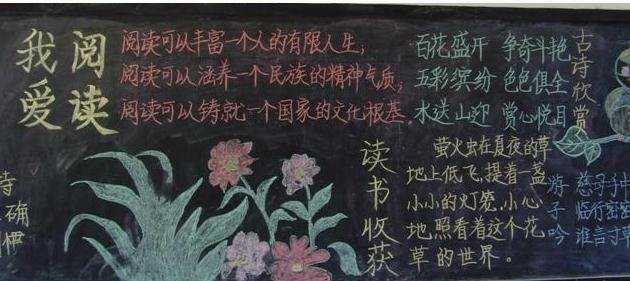 我爱
阅读
阅读可以丰富一个人的有限人生，
阅读可以涵养一个民族的精神气质，
阅读可以铸就一个国家的文化根基。
百花盛开 争奇斗艳
五彩缤纷 色色俱全
水送山迎 赏心悦目
古诗欣赏
读书收获
萤火虫在夏夜的草
地上低飞，提着一盏
小小的灯笼，小心
地照看着这个花
草的世界。
游子吟
慈母手中
临行密密
谁言寸草
确